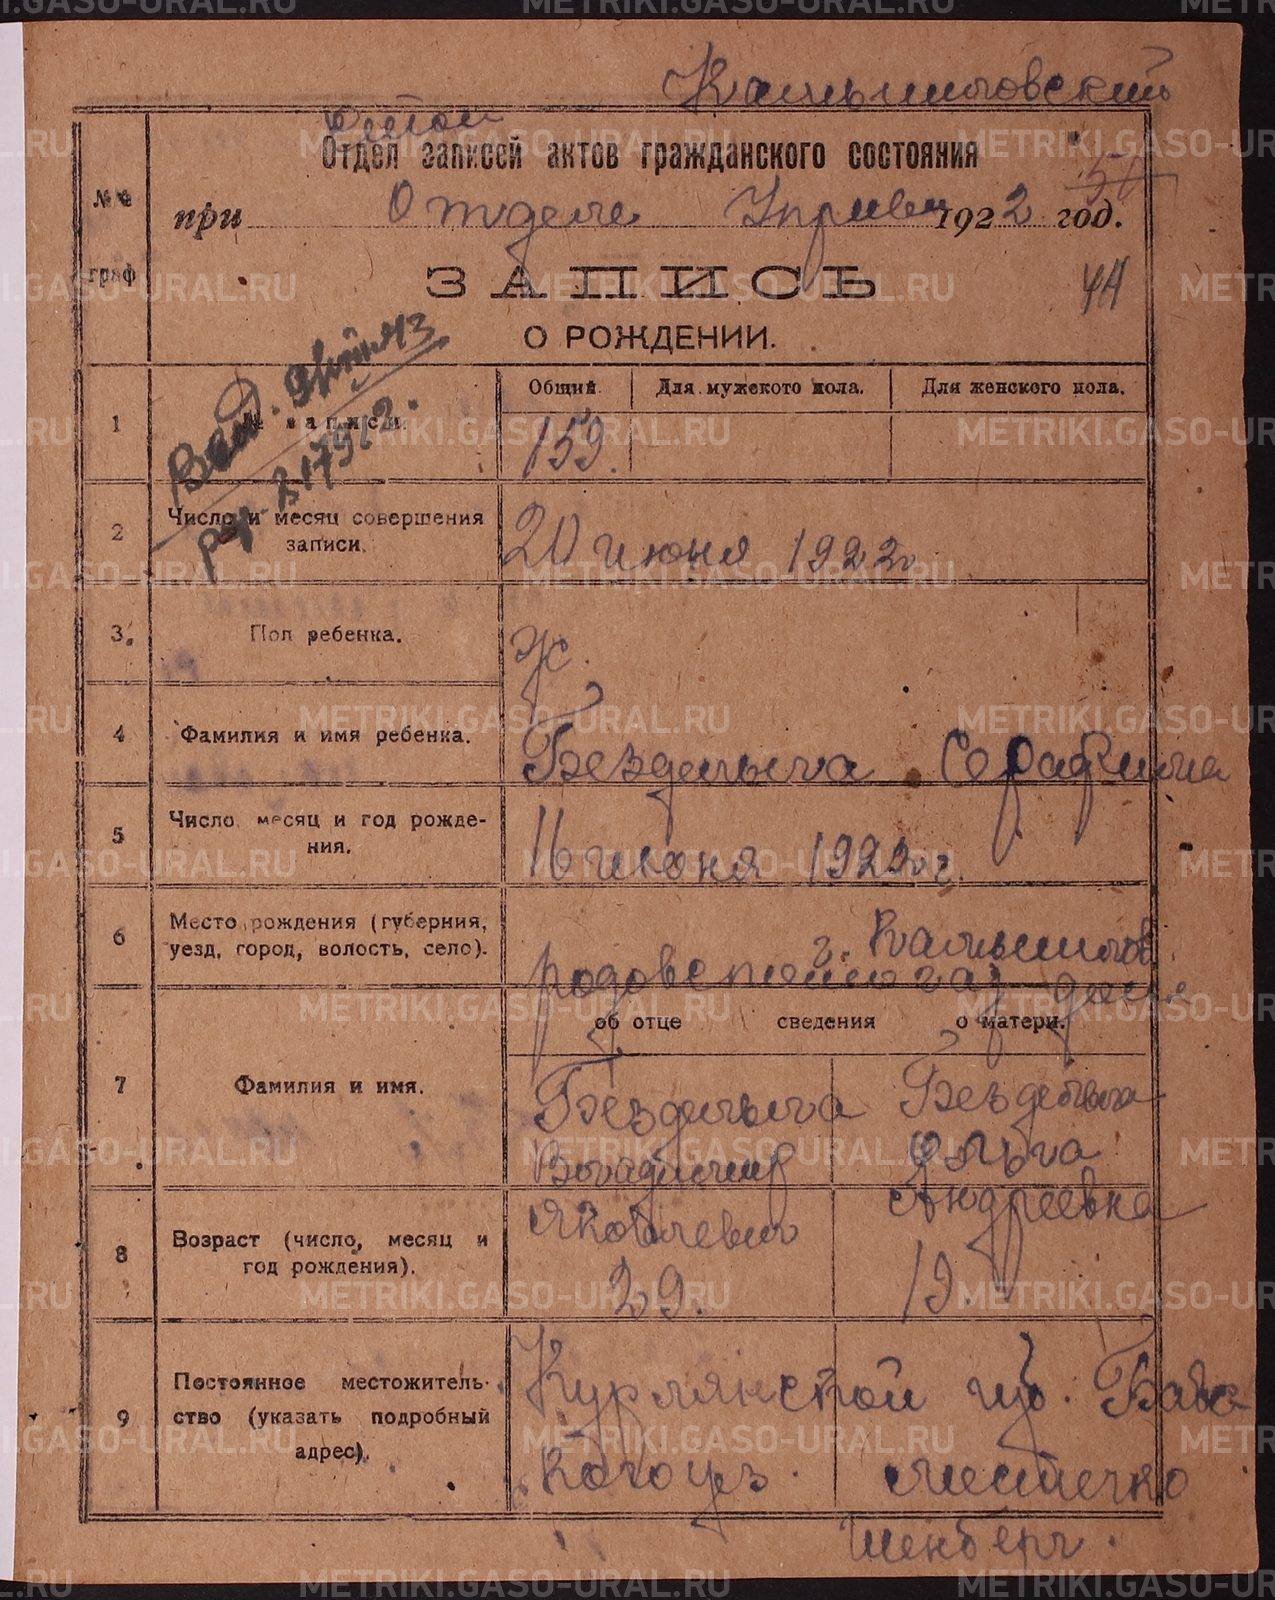 Камышловский
Отдел записей актов гражданского состояния
№№
при Отделе Управлен 1922 год.
граф
ЗАПИСЬ
44
О РОЖДЕНИИ.
Общий. Для мужского пола. Для женского пола.
1 № записи. 159.
2 Число и месяц совершения
записи. 20 июня 1922г
3. Пол ребенка. Ж.
4 Фамилия и имя ребенка. Бездельыга Серафима
5 Число, месяц и год рожде-
ния. 16 июня 1922 г.
6 Место рождения (губерния,
уезд, город, волость, село). г. Камышлов
об отце сведения о матери.
7 Фамилия и имя.
Владимир Ольга
Яковлевич Андреевна
8 Возраст (число, месяц и
год рождения). 29. 19.
9 Постоянное местожитель-
ство (указать подробный
адрес).
Курлянской губ. Бавс
кого уез. местечко
Шенберг.
METRIKI.GASO-URAL.RU